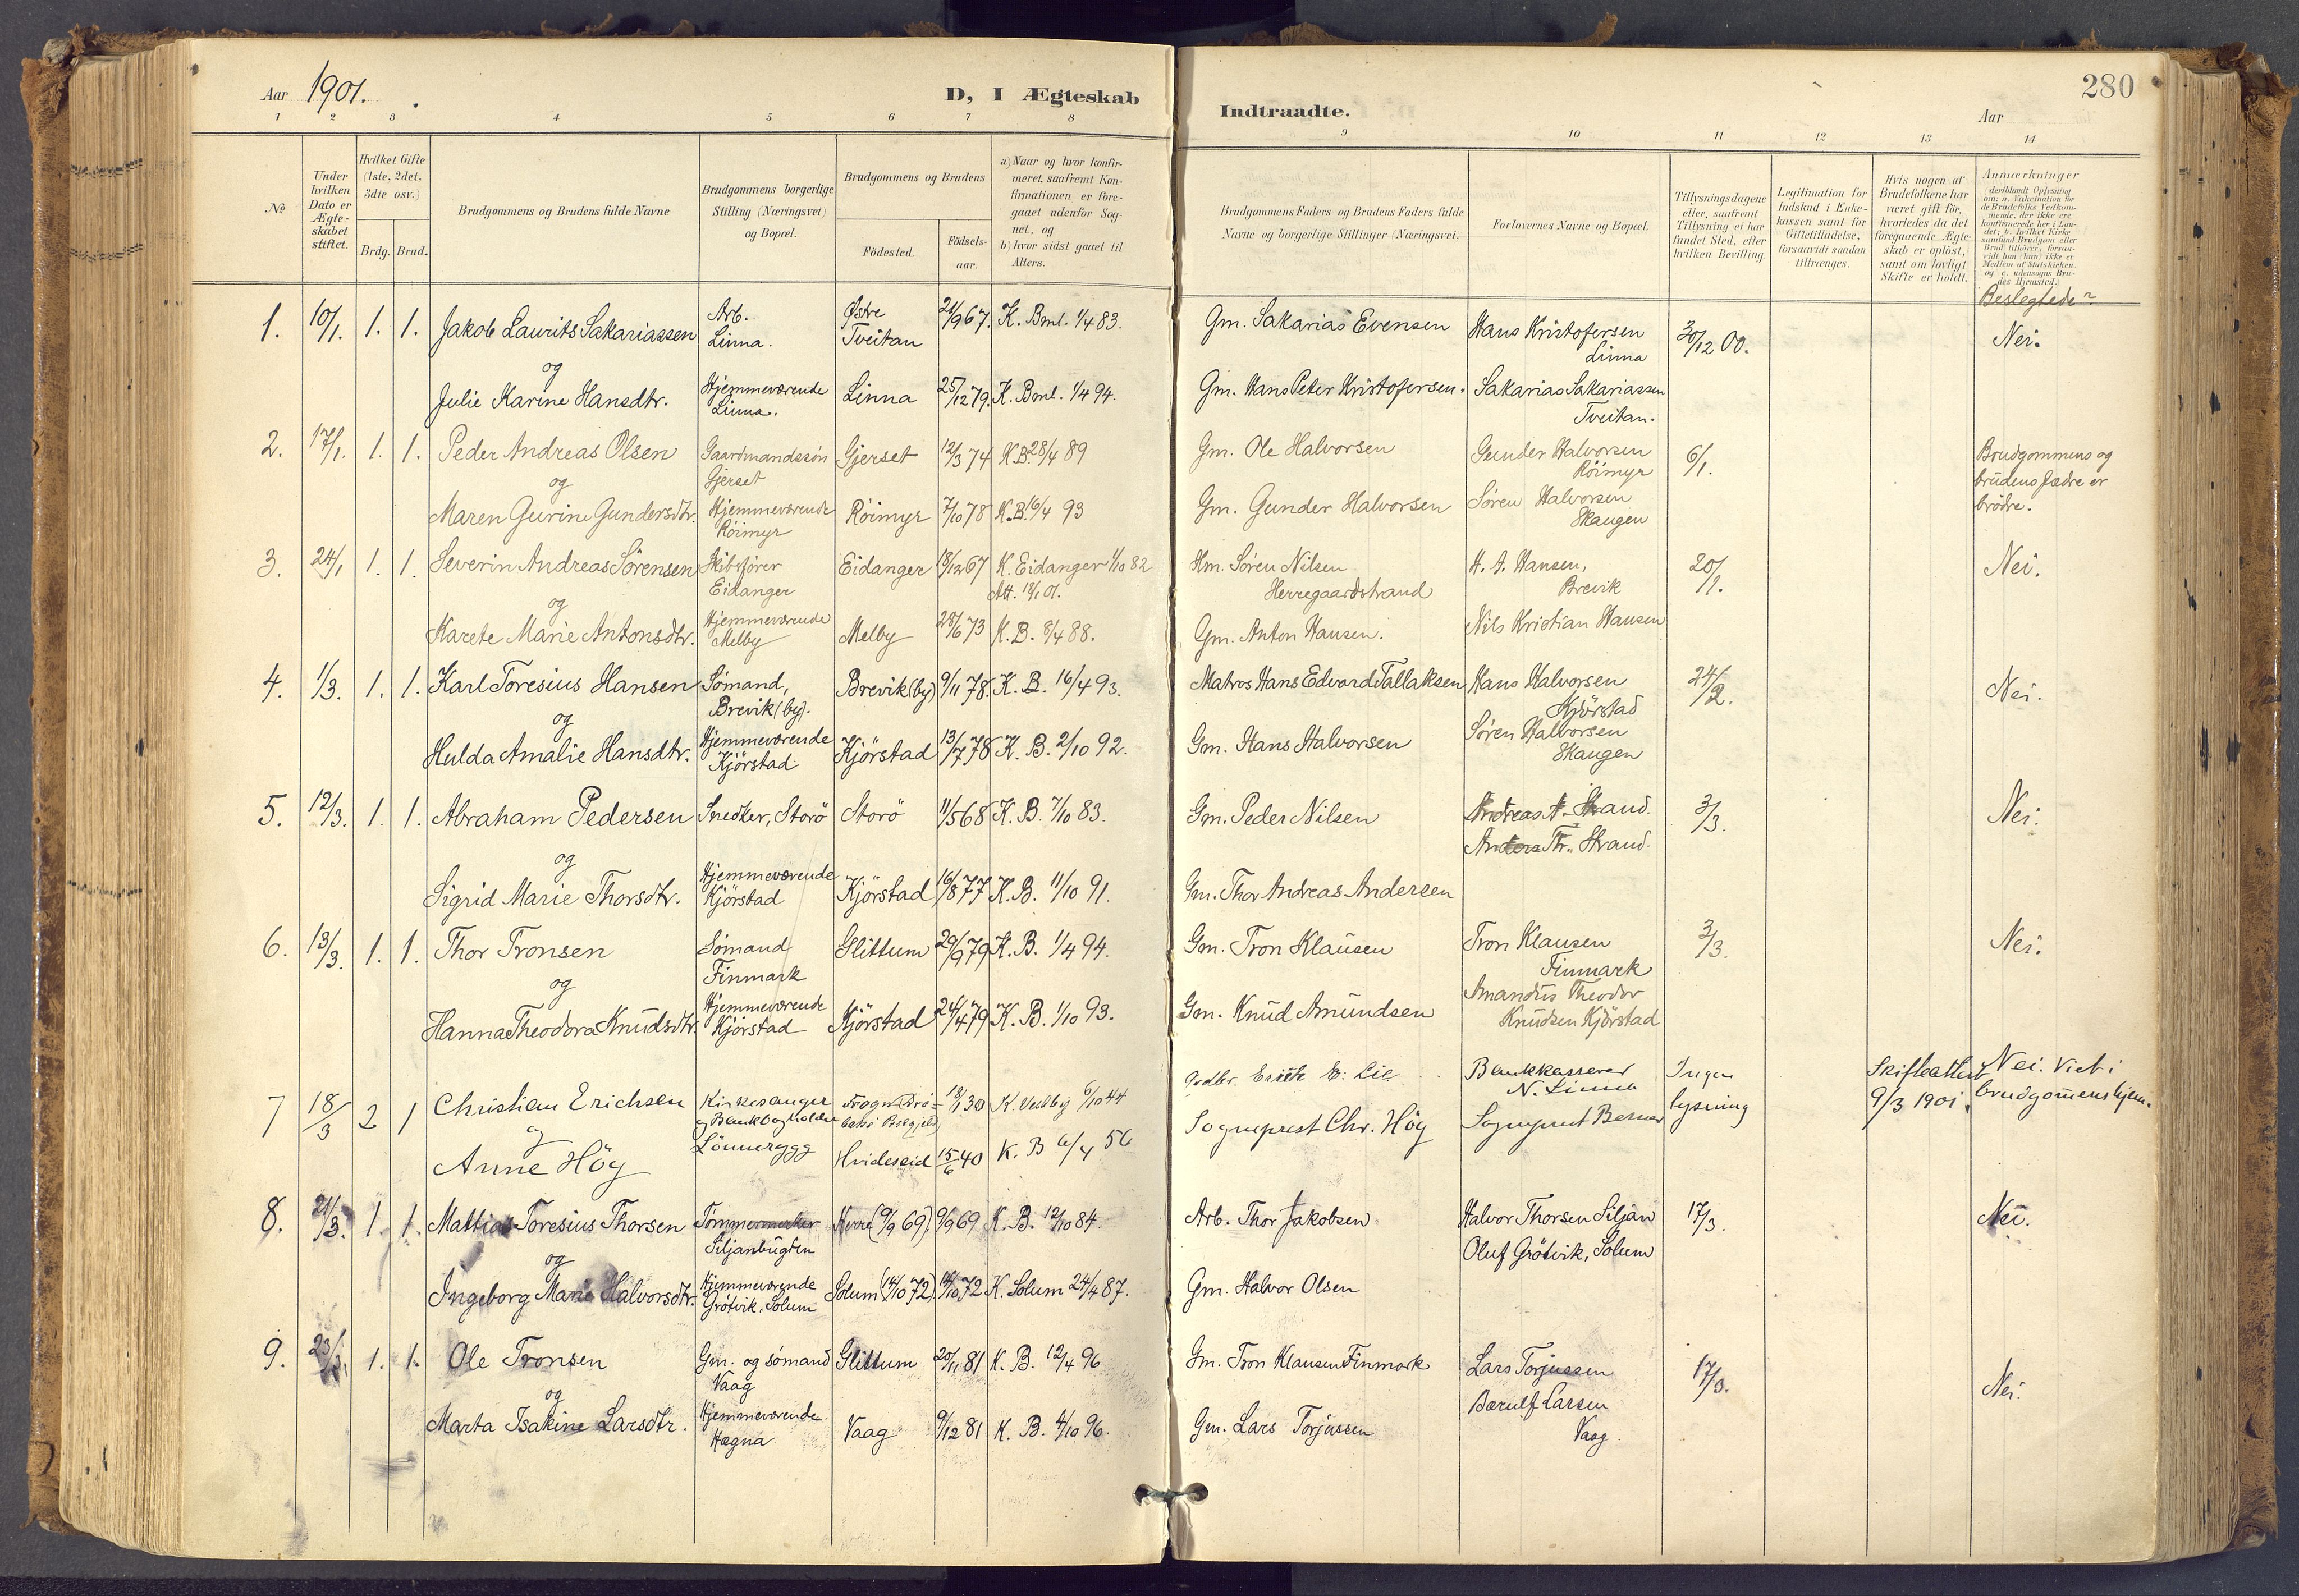 Aar 1901.
D, I Ægteskab
Indtraadte.
Aar
280
1 2 3 4 5 6 7 8 9 10 11 12 13 14
No
Under hvilken Dato er Ægte-skabet stiftet.
Hvilket Gifte (1ste, 2det, 3die osv.)
Brdg. Brud.
Brudgommens og Brudens fulde Navne
Brudgommens borgerlige Stilling (Næringsvei) og Bopæl.
Brudgommens og Brudens
Födested.
Födsels-aar.
a) Naar og hvor konfir-meret, saafremt Kon-firmationen er fore-gaaet udenfor Sog-net, og
b) hvor sidst gaaet til Alters.
Brudgommens Faders og Brudens Faders fulde Navne og borgerlige Stillinger (Næringsvei).
Forlovernes Navne og Bopæl.
Tillysningsdagene eller, saafremt Tillysning ei har fundet Sted, efter hvilken Bevilling.
Legitimation for Indskud i Enke-kassen samt for Giftetilladelse, forsaavidt saadan tiltrænges.
Hvis nogen af Brudefolkene har været gift för, hvorledes da det foregaaende Ægte-skab er oplöst, samt om lovligt Skifte er holdt.
Anmærkninger (deriblandt Oplysning om: a. Vakcination for de Brudefolks Vedkom-mende, der ikke ere konfirmerede her i Lan-det; b. hvilket Kirke-samfund Brudgom eller Brud tilhörer, forsaa-vidt han (hun) ikke er Medlem af Statskirken, og c. udensogns Bru-des Hjemsted.)
Beslegtede?
1. 10/1. 1. 1. Jakob Laurits Sakariassen Arb. Linna. Østre Tveitan 21/9 67. K. Bml. 1/4 83. Gm. Sakarias Evensen Hans Kristofersen Linna 30/12 00. Nei.
og
Julie Karine Hansdtr. Hjemmeværende Linna. Linna 25/12 79. K. Bml. 1/4 94. Gm. Hans Peter Kristofersen. Sakarias Sakariassen Tveitan.
2. 17/1. 1. 1. Peder Andreas Olsen Gaardmandssön Gjerset Gjerset 12/3 74 K.B. 28/4 89 Gm. Ole Halvorsen Gunder Halvorsen Röimyr 6/1. Brudgommens og brudens fædre er brödre.
og
Maren Gurine Gundersdtr. Hjemmeværende Röimyr Röimyr 7/10 78 K.B. 16/4 93 Gm. Gunder Halvorsen Sören Halvorsen Skaugen
3. 24/1 1. 1. Severin Andreas Sörensen Skibsförer Eidanger Eidanger 18/12 67 K. Eidanger 1/10 82 Att. 18/1 01. Hm. Sören Nilsen Herregaardstrand H. A. Hansen, Brevik 20/1. Nei.
og
Karete Marie Antonsdtr. Hjemmeværende Melby Melby 28/6 73 K. B. 8/4 88. Gm. Anton Hansen. Nils Kristian Hansen
4. 1/3. 1. 1. Karl Toresius Hansen Sömand, Brevik (by). Brevik (by) 9/11 78. K. B. 16/4 93. Matros Hans Edvard Tallaksen Hans Halvorsen Kjörstad 24/2. Nei.
og
Hulda Amalie Hansdtr. Hjemmeværende Kjörstad Kjörstad 13/7 78 K. B. 2/10 92. Gm. Hans Halvorsen Sören Halvorsen Skaugen
5. 12/3. 1. 1. Abraham Pedersen Snedker, Storö Storö 11/5 68 K. B. 7/10 83. Gm. Peder Nilsen Andreas A. Strand. Anders Th. Strand. 3/3. Nei.
og
Sigrid Marie Thorsdtr. Hjemmeværende Kjörstad Kjörstad 16/8 77 K. B. 11/10 91. Gm. Thor Andreas Andersen
6. 13/3. 1. 1. Thor Tronsen Sömand Finmark Glittum 29/9 79 K. B. 1/4 94. Gm. Tron Klausen Tron Klausen Finmark 3/3. Nei.
og
Hanna Theodora Knudsdtr. Hjemmeværende Kjörstad Kjörstad 24/4 79 K. B. 1/10 93. Gm. Knud Amundsen Amandus Theodor Knudsen Kjörstad
7 18/3 2 1 Christian Erichsen Kirkesanger og Bankbogholder 18/1 30 K. Vestby 6/10 44 E: Lie Bankkasserer N. Linna Ingen lysning Skifteattest 9/3 1901. Nei. Viet i brudgommens hjem.
og
Anne Höy Hvideseid 15/6 40 K. B 6/4 56 Sogneprest Chr. Höy Sogneprest
8. 21/3. 1. 1. Mattias Toresius Thorsen Tömmermerker Siljanbugten (9/9 69). 9/9 69 K. B. 12/10 84. Arb. Thor Jakobsen Halvor Thorsen Siljan 17/3. Nei.
og Oluf Grötvik, Solum
Ingeborg Marie Halvorsdtr. Hjemmeværende Grötvik, Solum Solum (14/10 72). 14/10 72 K. Solum 24/4 87. Gm. Halvor Olsen
9. 23/3. 1. 1. Ole Tronsen Gm. og sömand Vaag Glittum 20/11 81 K. B. 12/4 96 Gm. Tron Klausen Finmark Lars Torjussen 17/3. Nei.
og
Marta Isakine Larsdtr. Hjemmeværende Hægna Vaag 9/12 81 K. B. 4/10 96. Gm. Lars Torjussen Bærulf Larsen Vaag.